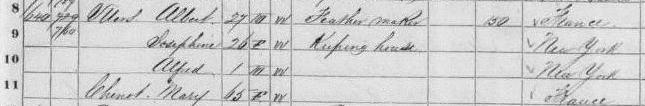 8 640 Albert 27 M W Feather maker 150 France
9 760 Josephine 26 F W Keeping house New York
10 Alfred 1 M W New York
11 Mary 65 F W France